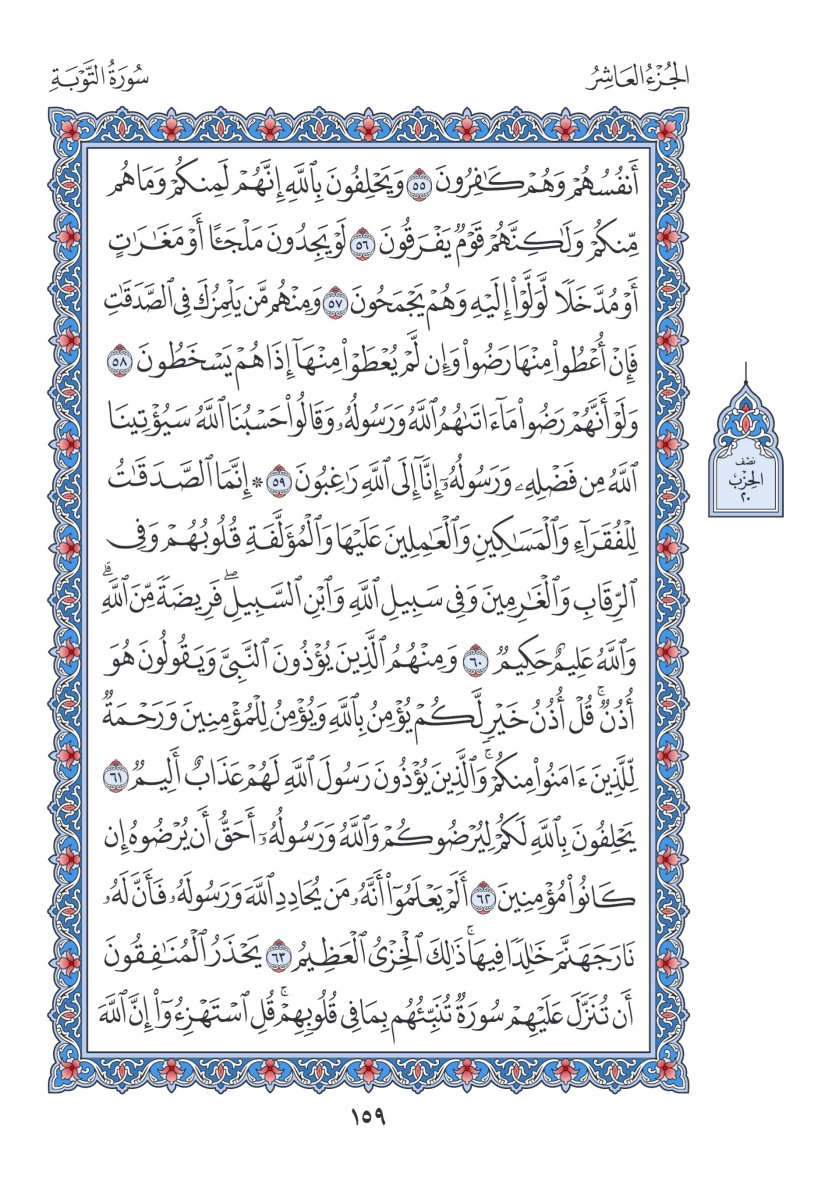 الجُزْءُ العَاشِرُ
سُورَةُ التَّوْبَةِ
أَنفُسُهُمْ وَهُمْ كَـٰفِرُونَ ٥٥ وَيَحْلِفُونَ بِٱللَّهِ إِنَّهُمْ لَمِنكُمْ وَمَا هُم
مِّنكُمْ وَلَـٰكِنَّهُمْ قَوْمٌ يَفْرَقُونَ ٥٦ لَوْ يَجِدُونَ مَلْجَـًٔا أَوْ مَغَـٰرَٰتٍ
أَوْ مُدَّخَلًا لَّوَلَّوْا۟ إِلَيْهِ وَهُمْ يَجْمَحُونَ ٥٧ وَمِنْهُم مَّن يَلْمِزُكَ فِى ٱلصَّدَقَـٰتِ
فَإِنْ أُعْطُوا۟ مِنْهَا رَضُوا۟ وَإِن لَّمْ يُعْطَوْا۟ مِنْهَآ إِذَا هُمْ يَسْخَطُونَ ٥٨
وَلَوْ أَنَّهُمْ رَضُوا۟ مَآ ءَاتَىٰهُمُ ٱللَّهُ وَرَسُولُهُۥ وَقَالُوا۟ حَسْبُنَا ٱللَّهُ سَيُؤْتِينَا
ٱللَّهُ مِن فَضْلِهِۦ وَرَسُولُهُۥٓ إِنَّآ إِلَى ٱللَّهِ رَٰغِبُونَ ٥٩ * إِنَّمَا ٱلصَّدَقَـٰتُ
لِلْفُقَرَآءِ وَٱلْمَسَـٰكِينِ وَٱلْعَـٰمِلِينَ عَلَيْهَا وَٱلْمُؤَلَّفَةِ قُلُوبُهُمْ وَفِى
ٱلرِّقَابِ وَٱلْغَـٰرِمِينَ وَفِى سَبِيلِ ٱللَّهِ وَٱبْنِ ٱلسَّبِيلِ ۖ فَرِيضَةً مِّنَ ٱللَّهِ ۗ
وَٱللَّهُ عَلِيمٌ حَكِيمٌ ٦٠ وَمِنْهُمُ ٱلَّذِينَ يُؤْذُونَ ٱلنَّبِىَّ وَيَقُولُونَ هُوَ
أُذُنٌ ۚ قُلْ أُذُنُ خَيْرٍ لَّكُمْ يُؤْمِنُ بِٱللَّهِ وَيُؤْمِنُ لِلْمُؤْمِنِينَ وَرَحْمَةٌ
لِّلَّذِينَ ءَامَنُوا۟ مِنكُمْ ۚ وَٱلَّذِينَ يُؤْذُونَ رَسُولَ ٱللَّهِ لَهُمْ عَذَابٌ أَلِيمٌ ٦١
يَحْلِفُونَ بِٱللَّهِ لَكُمْ لِيُرْضُوكُمْ وَٱللَّهُ وَرَسُولُهُۥٓ أَحَقُّ أَن يُرْضُوهُ إِن
كَانُوا۟ مُؤْمِنِينَ ٦٢ أَلَمْ يَعْلَمُوٓا۟ أَنَّهُۥ مَن يُحَادِدِ ٱللَّهَ وَرَسُولَهُۥ فَأَنَّ لَهُۥ
نَارَ جَهَنَّمَ خَـٰلِدًا فِيهَا ۚ ذَٰلِكَ ٱلْخِزْىُ ٱلْعَظِيمُ ٦٣ يَحْذَرُ ٱلْمُنَـٰفِقُونَ
أَن تُنَزَّلَ عَلَيْهِمْ سُورَةٌ تُنَبِّئُهُم بِمَا فِى قُلُوبِهِمْ ۚ قُلِ ٱسْتَهْزِءُوٓا۟ إِنَّ ٱللَّهَ
نصف
الحِزْب
٢٠
١٥٩